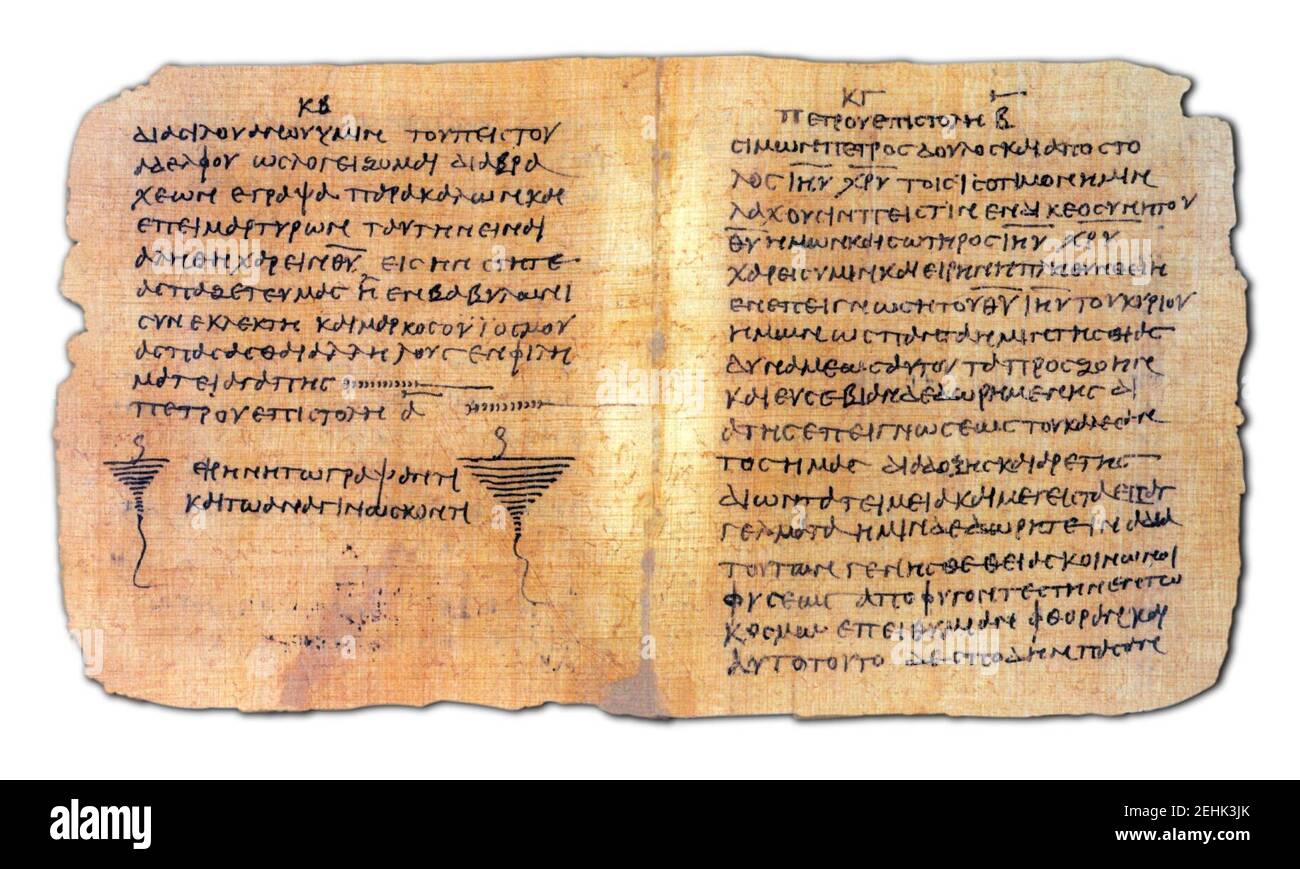 ΚΒ
διασιλουανουυμιν τουπειστου
αδελφου ωσλογειζομαι διαβρα
χεων εγραψα παρακαλωνκαι
επειμαρτυρων ταυτηνειναι
αληθηχαρεινθυ εισηνστητε
ασπαζετευμας η ενβαβυλωνι
συνεκλεκτη καιμαρκοσουϊοσμου
ασπασασθαιαλληλουσενφιλη
ματειαγαπης
πετρουεπιστολη α
ειρηνητωγραψαντι
καιτωαναγινωσκοντι
ΚΓ
πετρουεπιστολη β
σιμωνπετροσδουλοσκαιαποστο
λοσιηυ χρυ τοισισοτιμονημιν
λαχουσινπειστινενδικεοσυνητου
θυημωνκαισωτηροσιηυ χρυ
χαρεισυμινκαιειρηνηπληθυνθειη
ενεπειγνωσητουθυιηυτουκυριου
ημωνωσπανταημιντησθιας
δυναμεωσαυτουταπροσζωην
καιευσεβιανδεδωρημενησδι
ατησεπειγνωσεωστουκαλεσαν
τοσημας διαδοξησκαιαρετης
διωντατειμειακαιμεγεισταεπαγ
γελματαημινδεδωρητειναδια
τουτωνγενησθεθειασκοινωνοι
φυσεως αποφυγοντεστηνεντω
κοσμω επειθυμιανφθορανκαι
αυτοτουτο δεσπουδηνπασαν
alamy
a
Image ID: 2EHK3JK
www.alamy.com